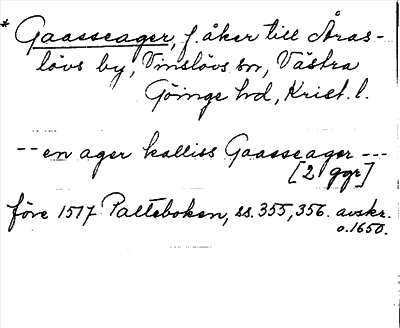 * Gaasseager, f. åker till Åras-
lövs by, Vinslövs sn, Västra
Göinge hd, Krist. l.
-- en ager kalliss Gaasseager ---
[2 ggr]
före 1517 Palteboken, ss. 355, 356. avskr.
o. 1650.